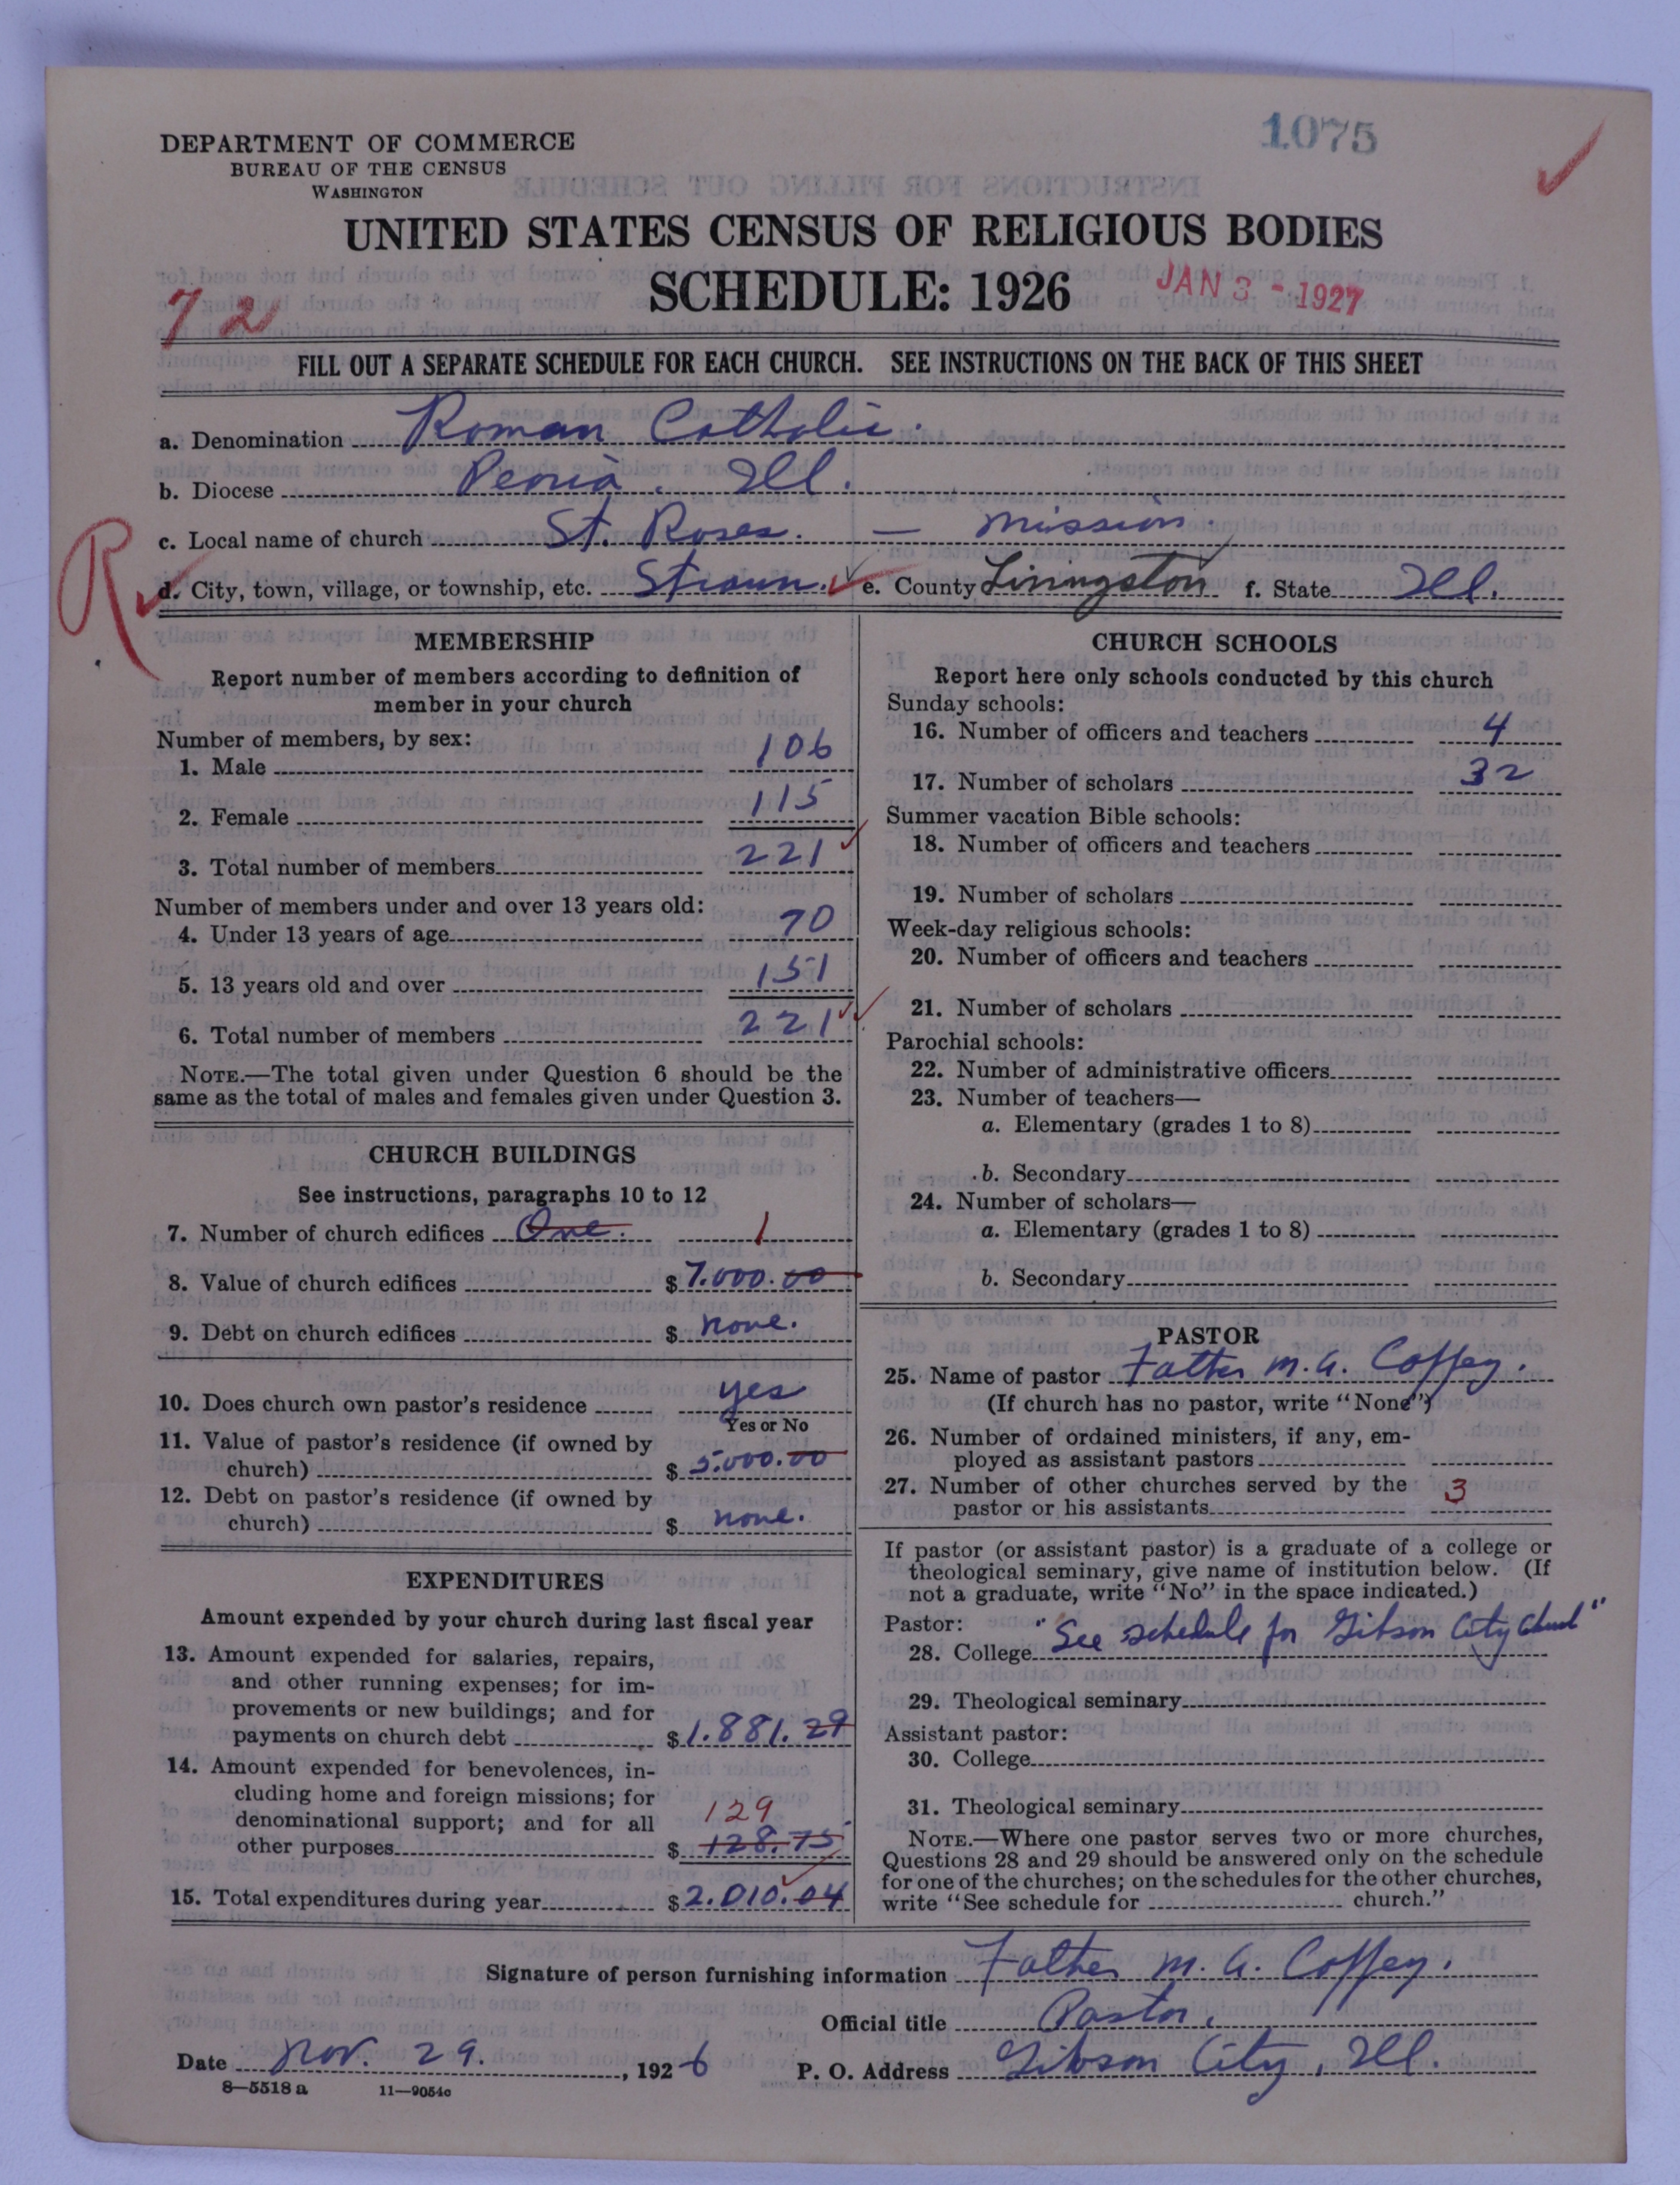 1075
DEPARTMENT OF COMMERCE
BUREAU OF THE CENSUS
WASHINGTON
UNITED STATES CENSUS OF RELIGIOUS BODIES
SCHEDULE: 1926
JAN 3 - 1927
72
FILL OUT A SEPARATE SCHEDULE FOR EACH CHURCH. SEE INSTRUCTIONS ON THE BACK OF THIS SHEET
a. Denomination Roman Catholic.
b. Diocese Peoria. Ill.
c. Local name of church St. Roses. — Mission.
R
d. City, town, village, or township, etc. Strawn. e. County Livingston f. State Ill.
MEMBERSHIP
Report number of members according to definition of
member in your church
Number of members, by sex:
1. Male 106
2. Female 115
3. Total number of members 221
Number of members under and over 13 years old:
4. Under 13 years of age 70
5. 13 years old and over 151
6. Total number of members 221
NOTE.—The total given under Question 6 should be the
same as the total of males and females given under Question 3.
CHURCH BUILDINGS
See instructions, paragraphs 10 to 12
7. Number of church edifices One. 1
8. Value of church edifices $ 7.000.00
9. Debt on church edifices $ none.
10. Does church own pastor's residence yes
Yes or No
11. Value of pastor's residence (if owned by
church) $ 5.000.00
12. Debt on pastor's residence (if owned by
church) $ none.
EXPENDITURES
Amount expended by your church during last fiscal year
13. Amount expended for salaries, repairs,
and other running expenses; for im-
provements or new buildings; and for
payments on church debt $ 1.881.29
14. Amount expended for benevolences, in-
cluding home and foreign missions; for
denominational support; and for all 129
other purposes $ 128.75
15. Total expenditures during year $ 2.010.04
CHURCH SCHOOLS
Report here only schools conducted by this church
Sunday schools:
16. Number of officers and teachers 4
17. Number of scholars 32
Summer vacation Bible schools:
18. Number of officers and teachers
19. Number of scholars
Week-day religious schools:
20. Number of officers and teachers
21. Number of scholars
Parochial schools:
22. Number of administrative officers
23. Number of teachers—
a. Elementary (grades 1 to 8)
b. Secondary
24. Number of scholars—
a. Elementary (grades 1 to 8)
b. Secondary
PASTOR
25. Name of pastor Father M. A. Coffey.
(If church has no pastor, write "None")
26. Number of ordained ministers, if any, em-
ployed as assistant pastors
27. Number of other churches served by the
pastor or his assistants 3
If pastor (or assistant pastor) is a graduate of a college or
theological seminary, give name of institution below. (If
not a graduate, write "No" in the space indicated.)
Pastor:
28. College "See schedule for Gibson City Church"
29. Theological seminary
Assistant pastor:
30. College
31. Theological seminary
NOTE.—Where one pastor serves two or more churches,
Questions 28 and 29 should be answered only on the schedule
for one of the churches; on the schedules for the other churches,
write "See schedule for church."
Signature of person furnishing information Father M. A. Coffey.
Official title Pastor.
Date Nov. 29. , 1926 P. O. Address Gibson City, Ill.
8—5518 a 11—9054c